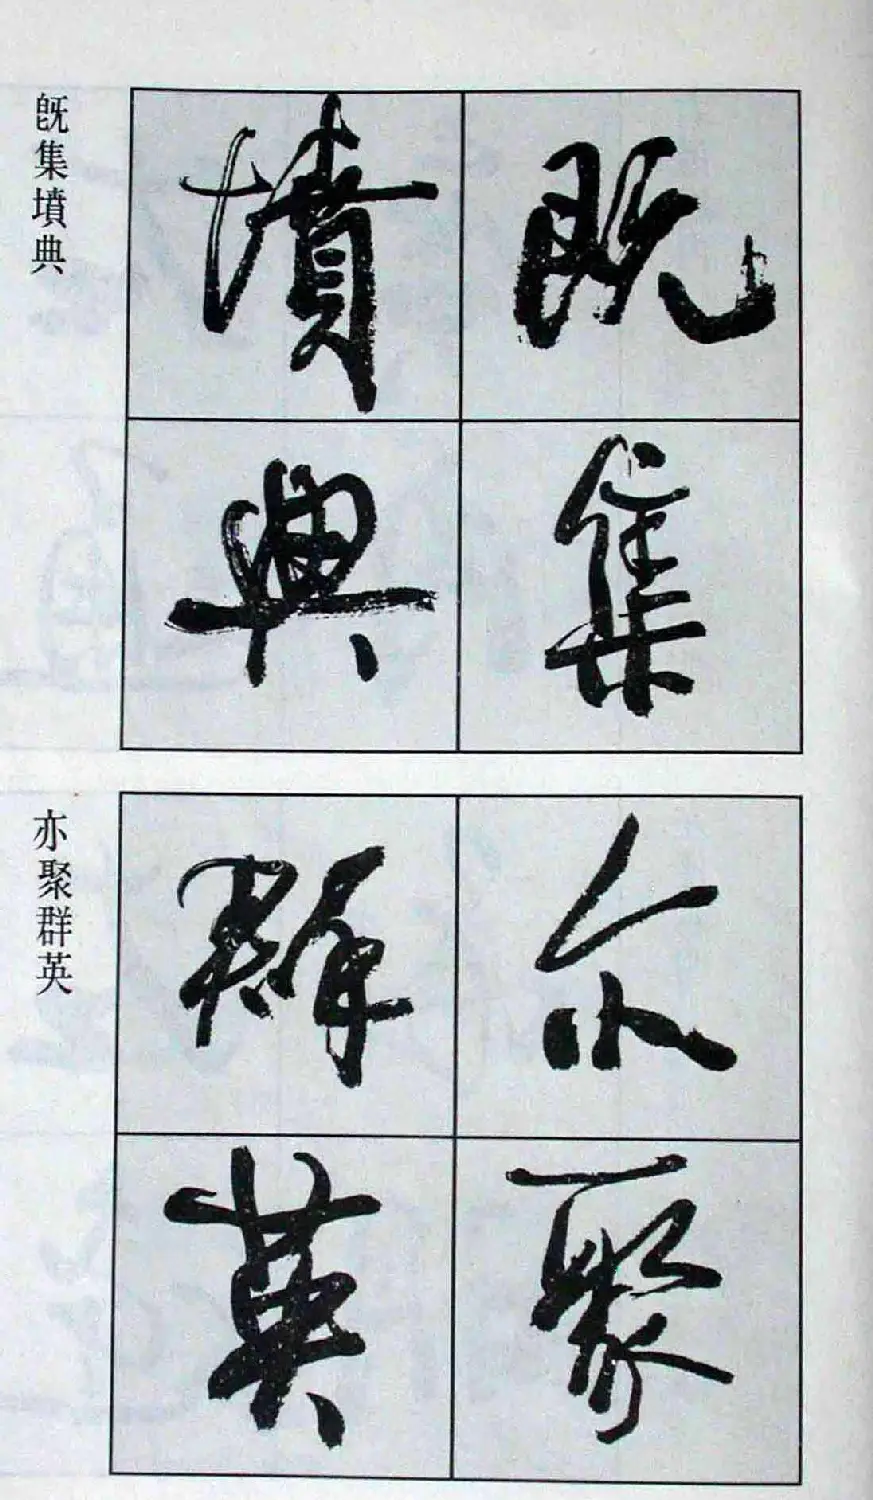 既集
墳典
既集墳典
亦聚
群英
亦聚群英